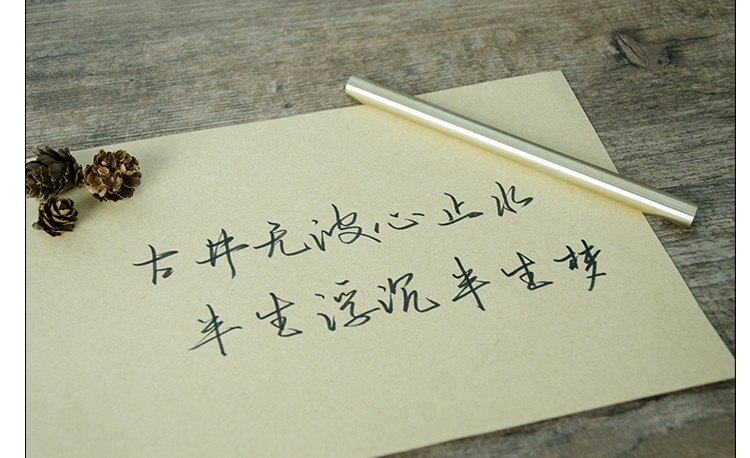 古井无波心止水
半生浮沉半生梦